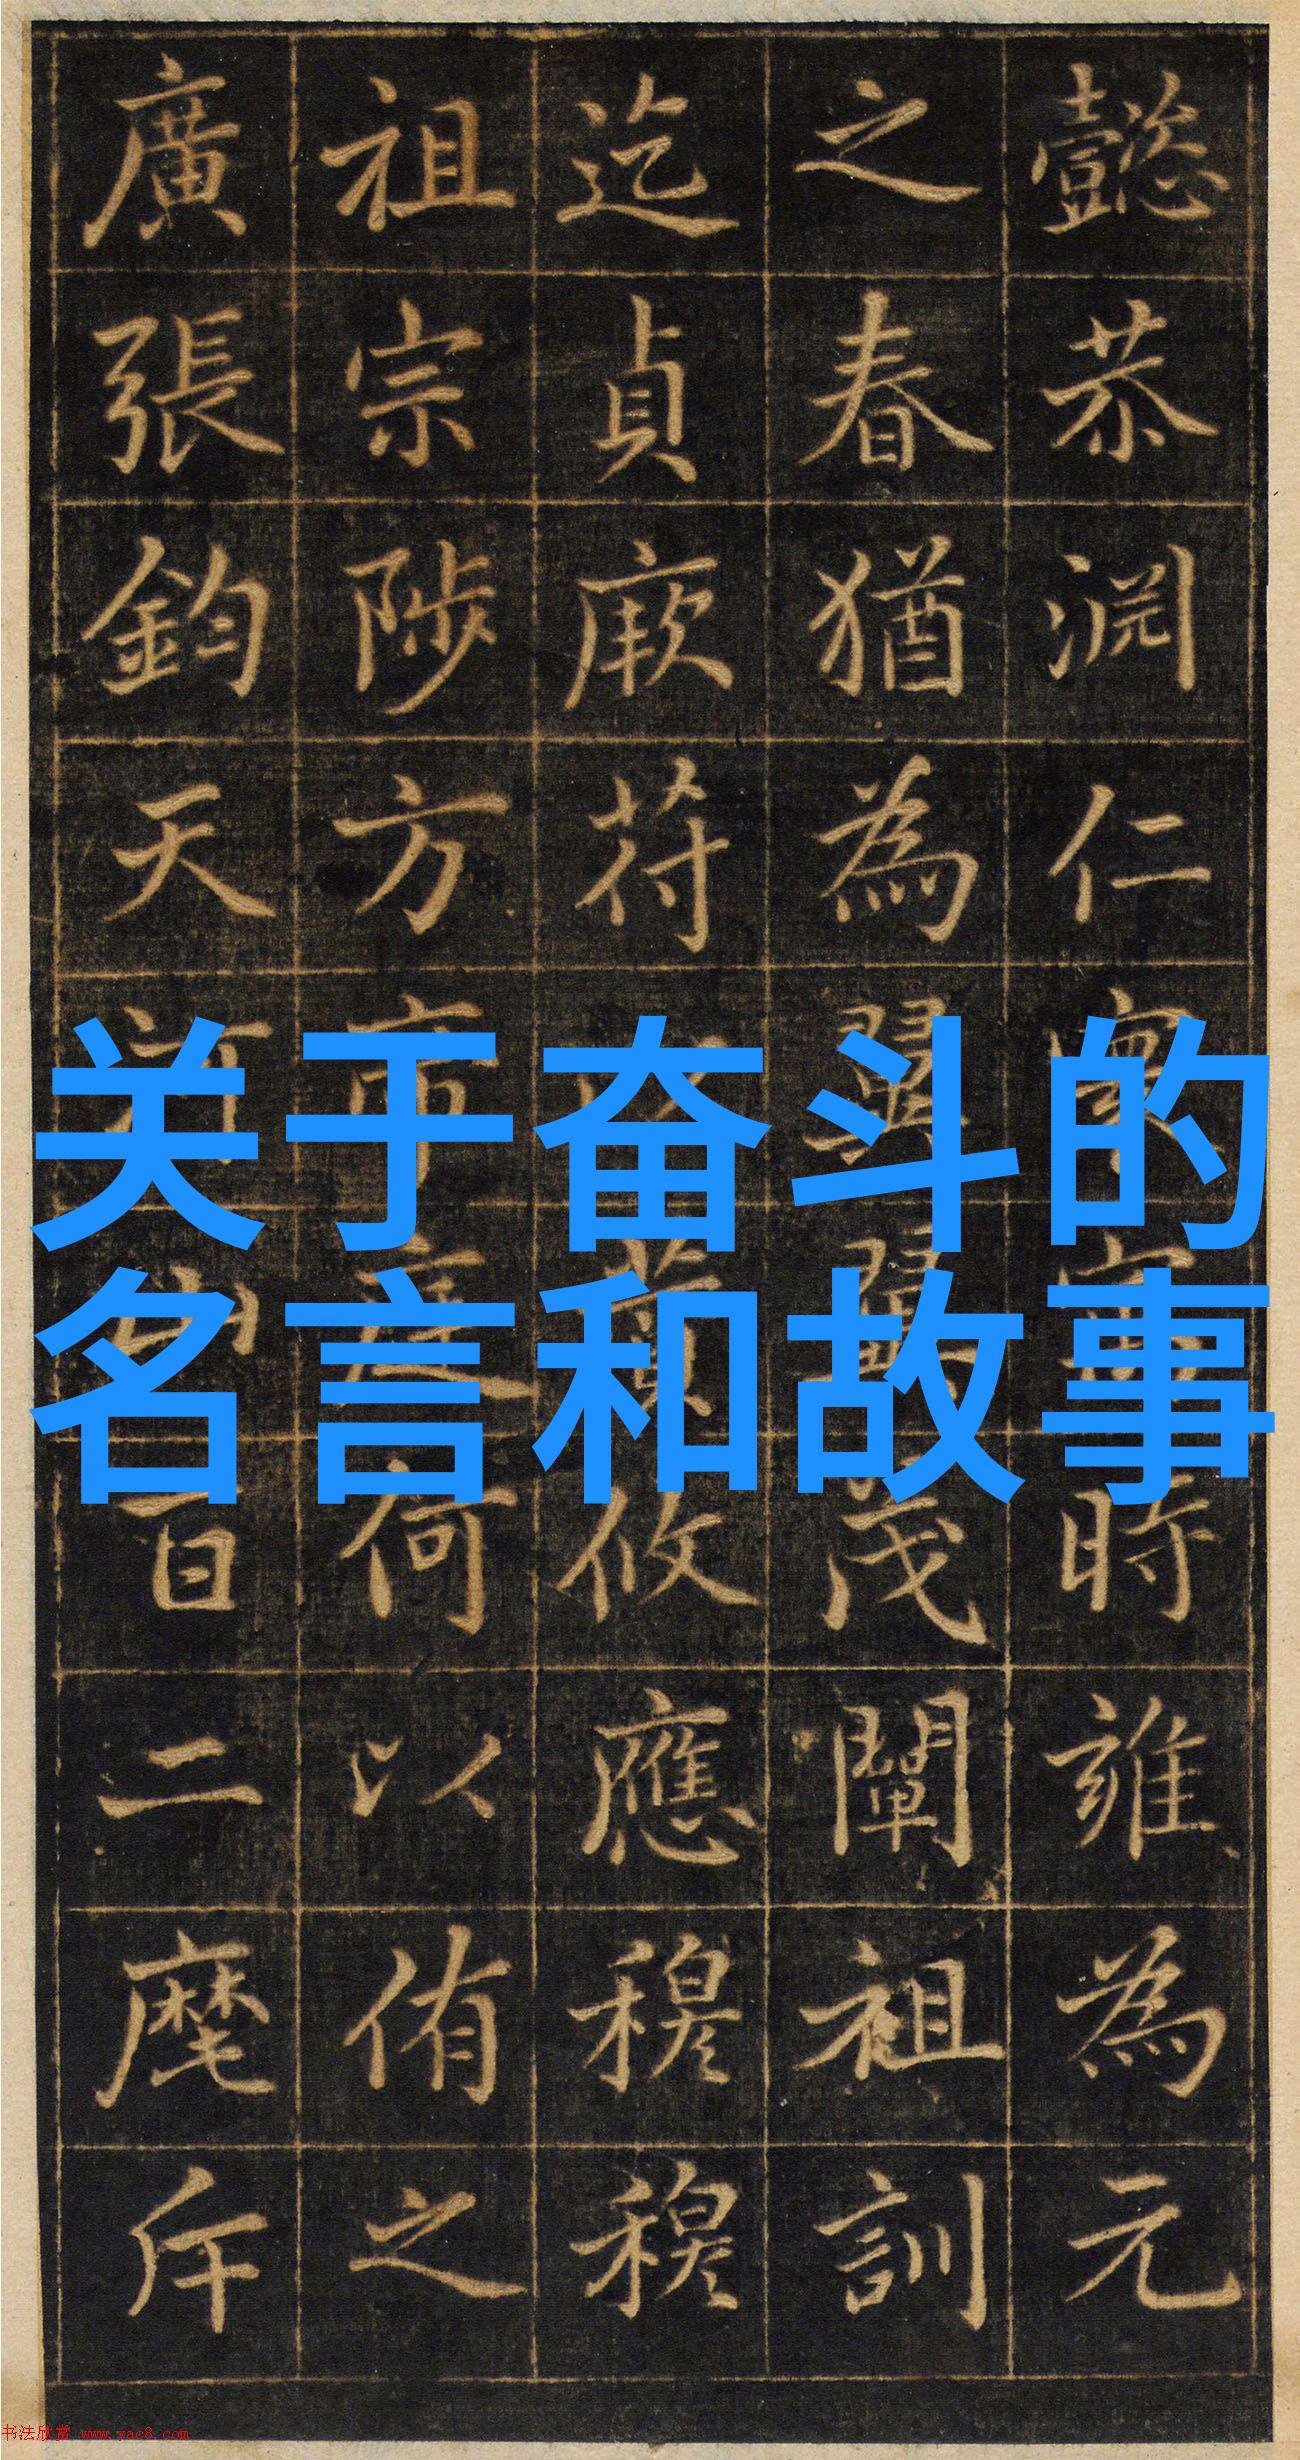 懿恭淵仁時雍為元
之春猶為茂闡祖訓
迄貞厥符攸應穆穆
祖宗陟方帝庭何以侑之
廣張鈞天百二麾斥
关于奋斗的
名言和故事
书法欣赏 www.yac8.com